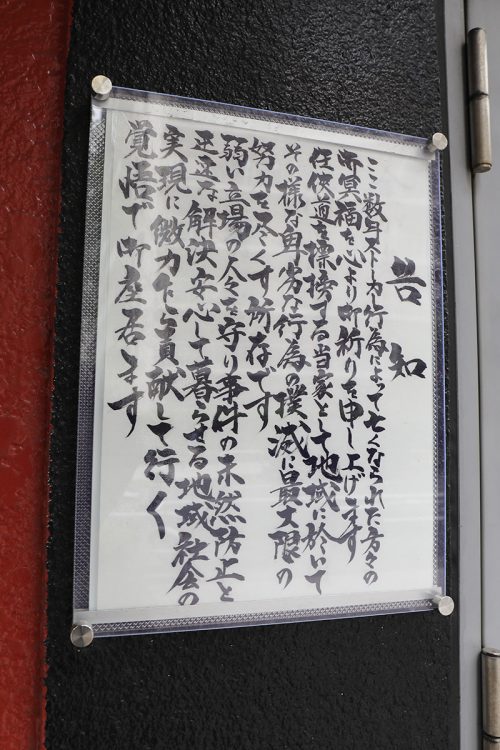 告知
ここ数年ストーカー行為によって亡くなられた方々の
御冥福を心より御祈りを申し上げます
任侠道を標榜する当家として地域に於いて
その様な卑劣な行為の撲滅に最大限の
努力を尽くす所存です
弱い立場の人々を守り事件の未然防止と
正正な解決安心して暮らせる地域社会の
実現に微力乍ら貢献して行く
覚悟で御座居ます